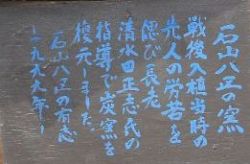 石山八正の窯
戦後入植当時の
先人の労苦を
偲び長老
清水田正志氏の
指導で炭窯を
復元しました
石山八正の有志
一九九九年